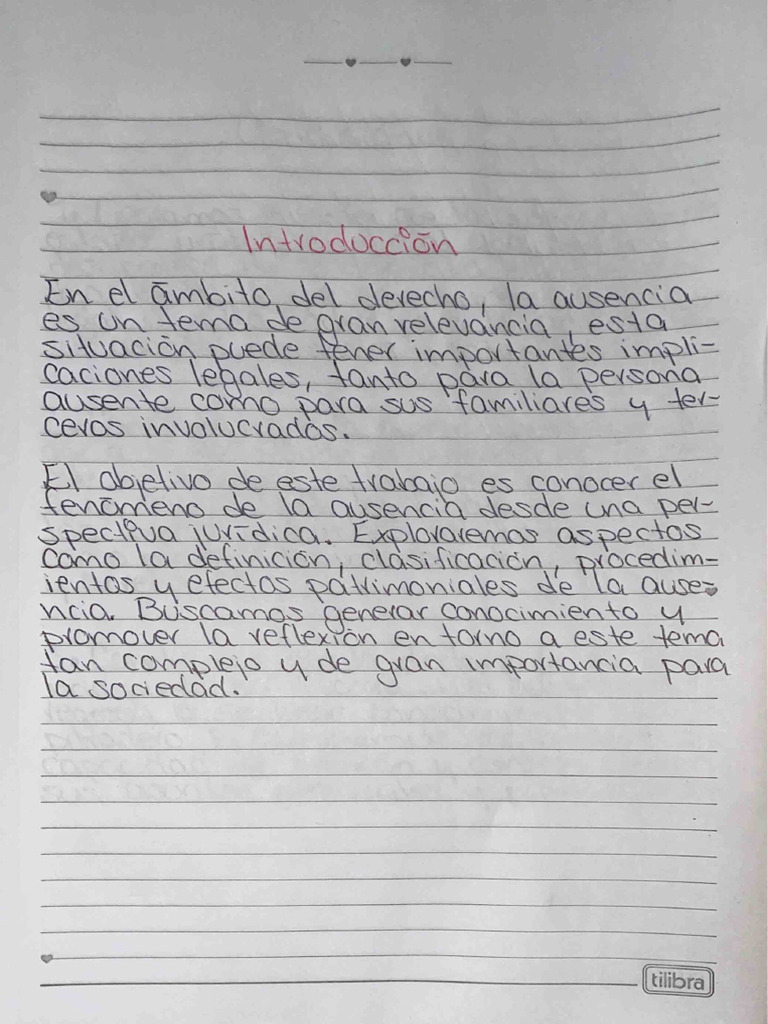 Introducción
En el ámbito del derecho, la ausencia
es un tema de gran relevancia, esta
situación puede tener importantes impli-
caciones legales, tanto para la persona
ausente como para sus familiares y ter-
ceros involucrados.
El objetivo de este trabajo es conocer el
fenómeno de la ausencia desde una per-
spectiva jurídica. Exploraremos aspectos
como la definición, clasificación, procedim-
ientos y efectos patrimoniales de la ause-
ncia. Buscamos generar conocimiento y
promover la reflexión en torno a este tema
tan complejo y de gran importancia para
la sociedad.
tilibra